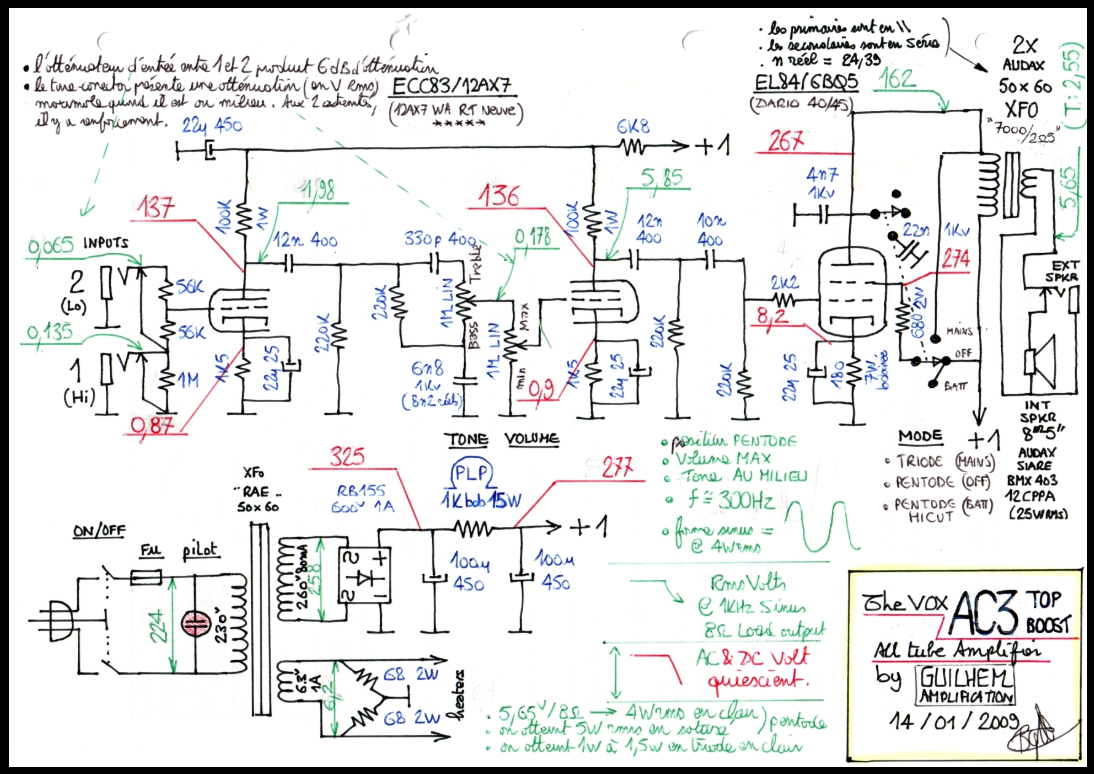 • l'atténuateur d'entrée entre 1 et 2 produit 6 dB d'atténuation
• le tone-corrector présente une atténuation (en V Rms)
maximale quand il est au milieu. Aux 2 extrémités,
il y a renforcement.
ECC83/12AX7
(12AX7 WA R.T Neuve)
*****
EL84/6BQ5
(DARIO 40/45)
• les primaires sont en //
• les secondaires sont en Série
• n réel = 24,39
2X
AUDAX
50 x 60
XFO
"7000/2Ω5"
(T: 2,55)
5,65
162
267
22µ 450
6K8
+1
137
1,98
136
5,85
100K
1W
100K
1W
4n7
1Kv
22n
1Kv
274
0,065
INPUTS
2
(Lo)
0,135
1
(Hi)
56K
56K
1M
12n 400
330p 400
Treble
Bass
1M LIN
0,178
1M LIN
Max
min
12n
400
10n
400
2K2
8,2
680 2W
MAINS
OFF
BATT
EXT
SPKR
220K
220K
6n8
1Kv
(8n2 réels)
1K5
22µ 25
0,87
1K5
22µ 25
0,9
220K
220K
22µ 25
180
7W
bobinée
+1
INT
SPKR
8" 5"
AUDAX
SIARE
BMX 403
12CPPA
(25WRMS)
TONE VOLUME
MODE
• TRIODE (MAINS)
• PENTODE (OFF)
• PENTODE (BATT)
HICUT
• position PENTODE
• Volume MAX
• Tone AU MILIEU
• f ≅ 300Hz
• forme sinus =
@ 4Wrms
XFo
"RAE"
50 x 60
325
RB155
600v 1A
(PLP)
1K bob 15W
277
+1
ON/OFF
Fu
pilot
224
230v
260v 80mA
258
100µ
450
100µ
450
6.3v
1A
6,2
68 2W
68 2W
heaters
Rms Volts
@ 1KHz Sinus
8Ω Load output
AC & DC Volt
quiescient.
• 5,65v/8Ω → 4Wrms en clair) pentode
• on atteint 5W rms en saturé
• on atteint 1W à 1,5W en triode en clair
The VOX AC3 TOP
BOOST
All tube Amplifier
by GUILHEM
AMPLIFICATION
14/01/2009